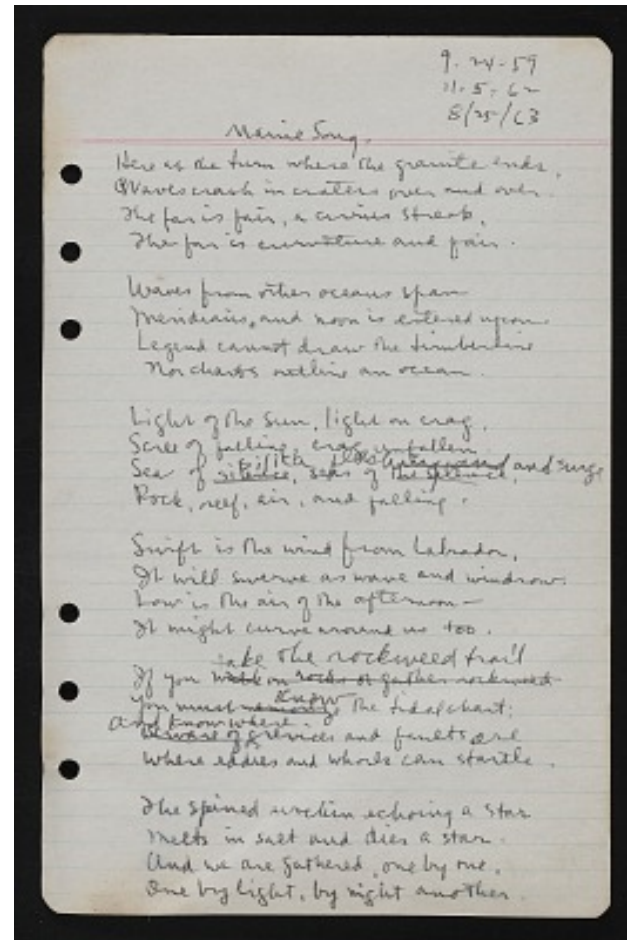 9-24-59
11-5-62
8/25/63
Maine Song.
Here is the turn where the granite ends.
Waves crash in craters over and over.
The far is fair, a curving streak,
The far is curvature and fair.
Waves from other oceans span
Meridians, and noon is entered upon
Legend cannot draw the timberline
Nor charts outline an ocean.
Light of the sun, light on crag,
Scree of falling, crag unfallen
Sea of silence, seas of the silence, and surge
Rock, reef, air, and falling.
Swift is the wind from Labrador,
It will swerve as wave and windrow.
Low is the air of the afternoon—
It might curve around us too.
take the rockweed trail
If you walk on rocks or gather rockweed
know
You must the tidal chart;
And know where
Beware of crevices and faults are
Where eddies and whorls can startle.
The spined urchin echoing a star
Melts in salt and dies a star.
And we are gathered, one by one,
One by light, by night another.